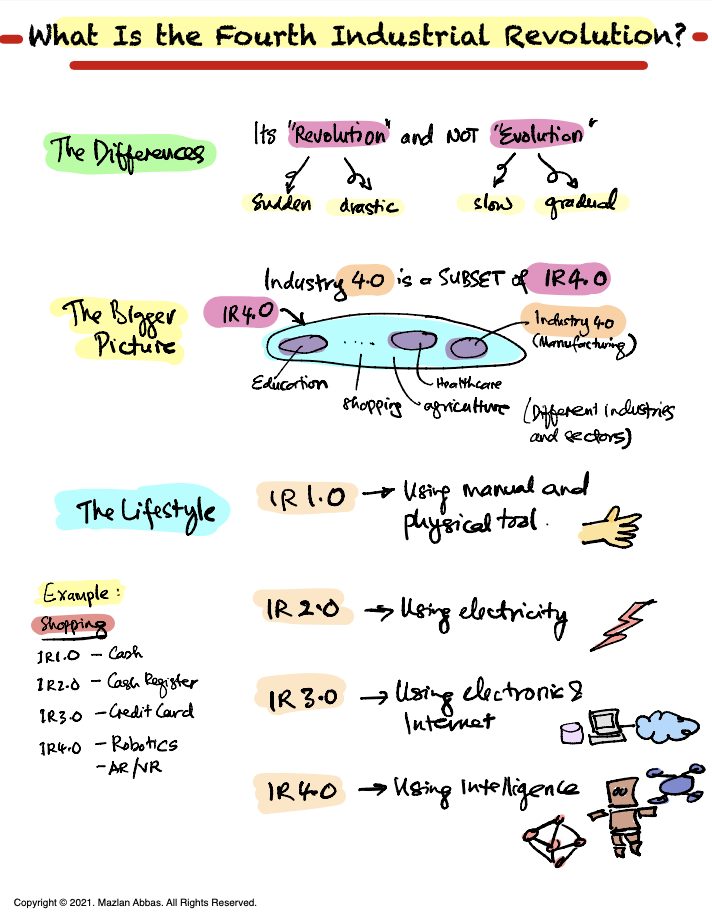 What Is the Fourth Industrial Revolution?
The Differences
Its "Revolution" and NOT "Evolution"
Sudden drastic slow gradual
Industry 4.0 is a SUBSET of IR4.0
The Bigger
Picture
IR4.0
Industry 4.0
(Manufacturing)
Education
Healthcare
shopping
agriculture
(Different industries
and sectors)
The Lifestyle
IR 1.0 → Using manual and
physical tool.
IR 2.0 → Using electricity
IR 3.0 → Using electronic &
Internet
IR 4.0 → Using Intelligence
Example :
Shopping
IR1.0 – Cash
IR2.0 – Cash Register
IR3.0 – Credit Card
IR4.0 – Robotics
– AR/VR
Copyright © 2021. Mazlan Abbas. All Rights Reserved.